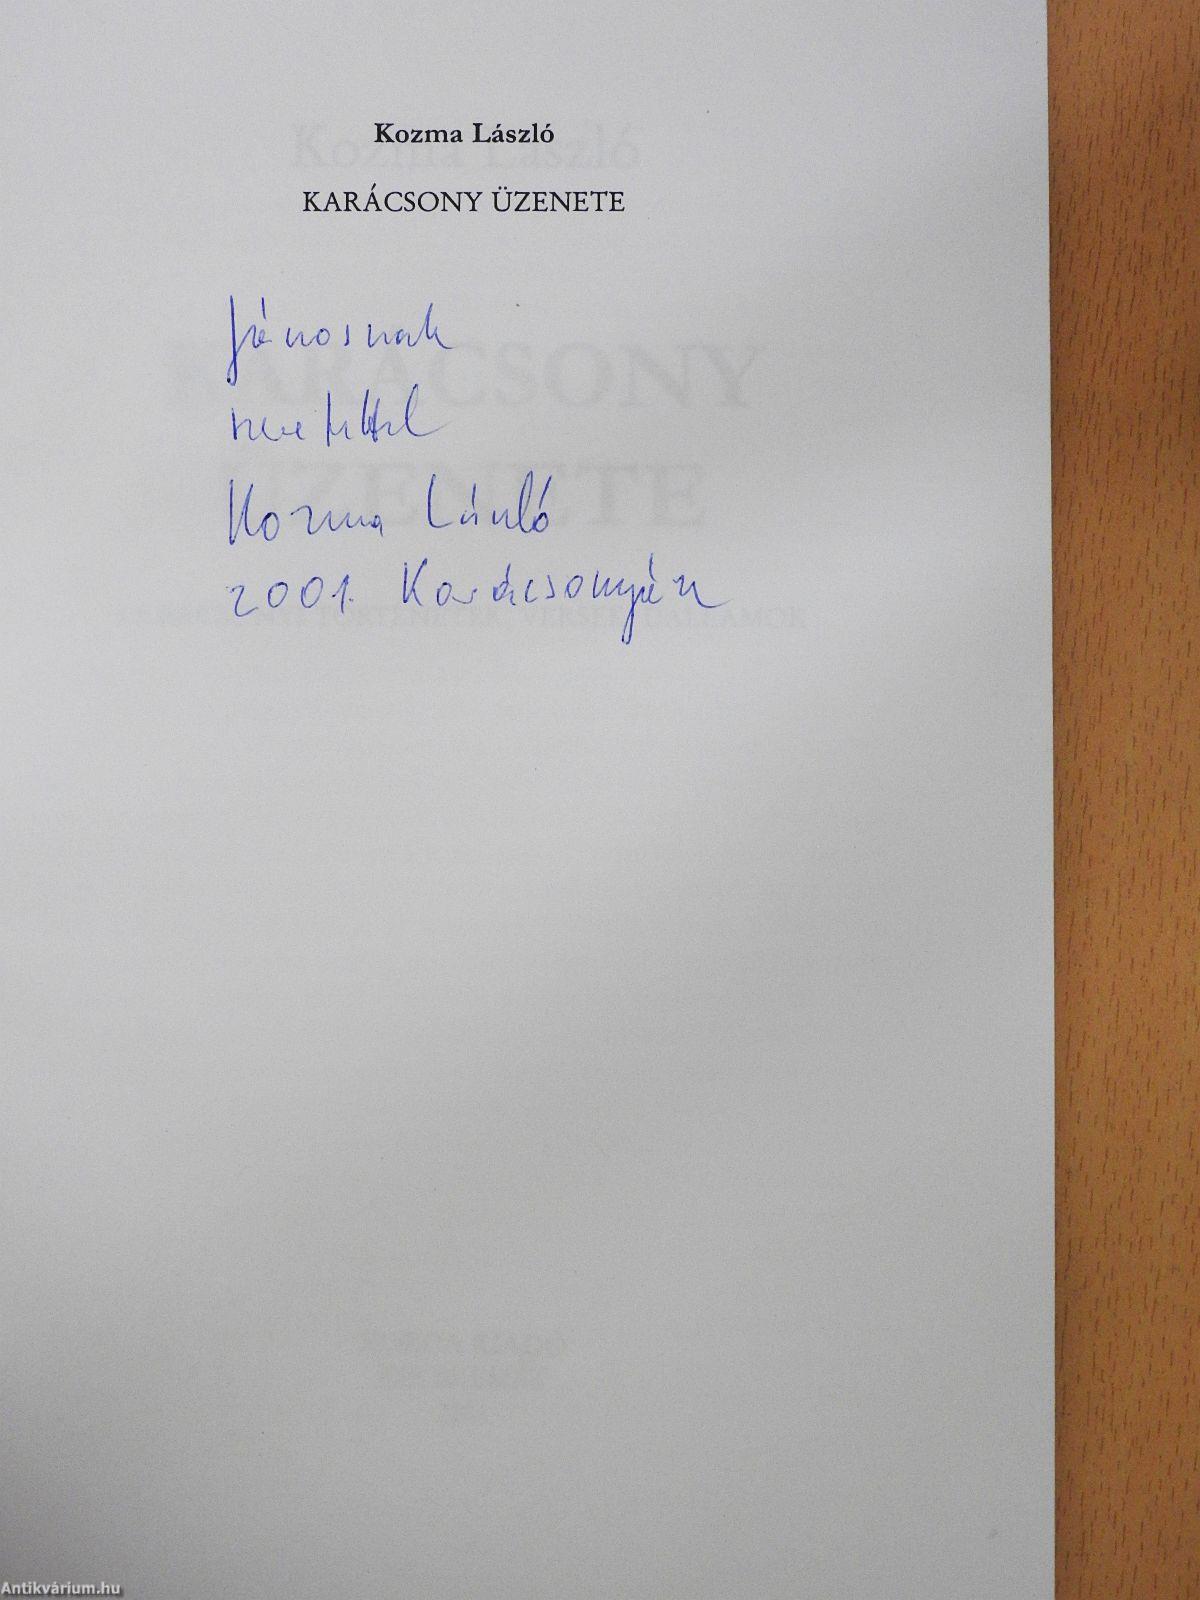 Kozma László
KARÁCSONY ÜZENETE
Jánosnak
szeretettel
Kozma László
2001. Karácsonyán
Antikvárium.hu